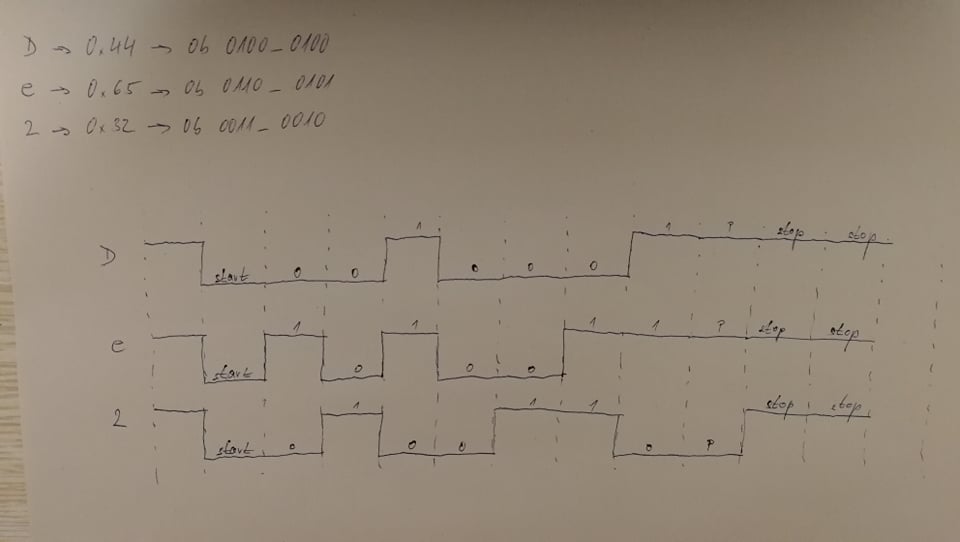 D → 0x44 → 0b 0100_0100
e → 0x65 → 0b 0110_0101
2 → 0x32 → 0b 0011_0010
D start 0 0 1 0 0 0 1 P stop stop
e start 1 0 1 0 0 1 1 P stop stop
2 start 0 1 0 0 1 1 0 P stop stop